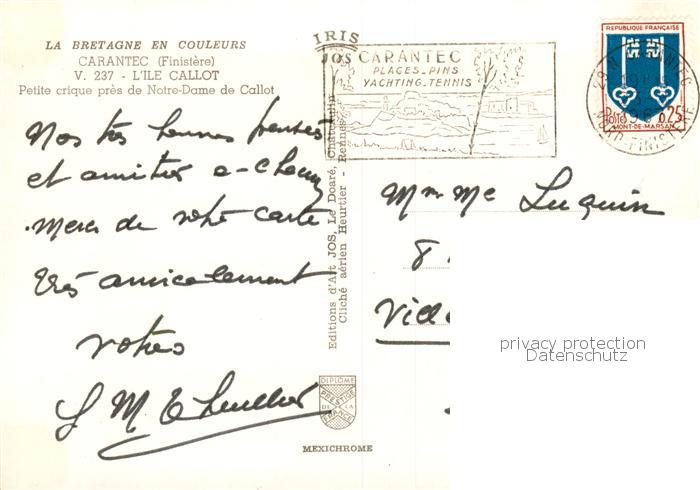 LA BRETAGNE EN COULEURS
CARANTEC (Finistère)
V. 237 - L'ILE CALLOT
Petite crique près de Notre-Dame de Callot
Nos très bonnes pensées
et amitiés a-
Merci de votre carte
très amicalement
votres
IRIS
JOS
Editions d'Art JOS, Le Doaré, Châteaulin
Cliché aérien Heurtier - Rennes
DIPLOME
PRESTIGE
DE LA
FRANCE
MEXICHROME
CARANTEC
PLAGES_PINS
YACHTING_TENNIS
REPUBLIQUE FRANÇAISE
Postes 0,25
MONT-DE-MARSAN
CARANTEC
NORD-FINISTERE
Mm Mc Luquin
8
privacy protection
Datenschutz